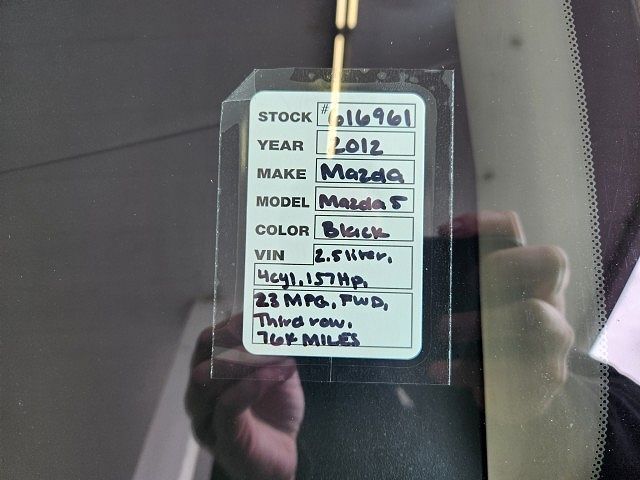 STOCK # 616961
YEAR 2012
MAKE Mazda
MODEL Mazda 5
COLOR Black
VIN 2.5 liter,
4cyl, 157Hp,
23 MPG, FWD,
Third row,
76K MILES